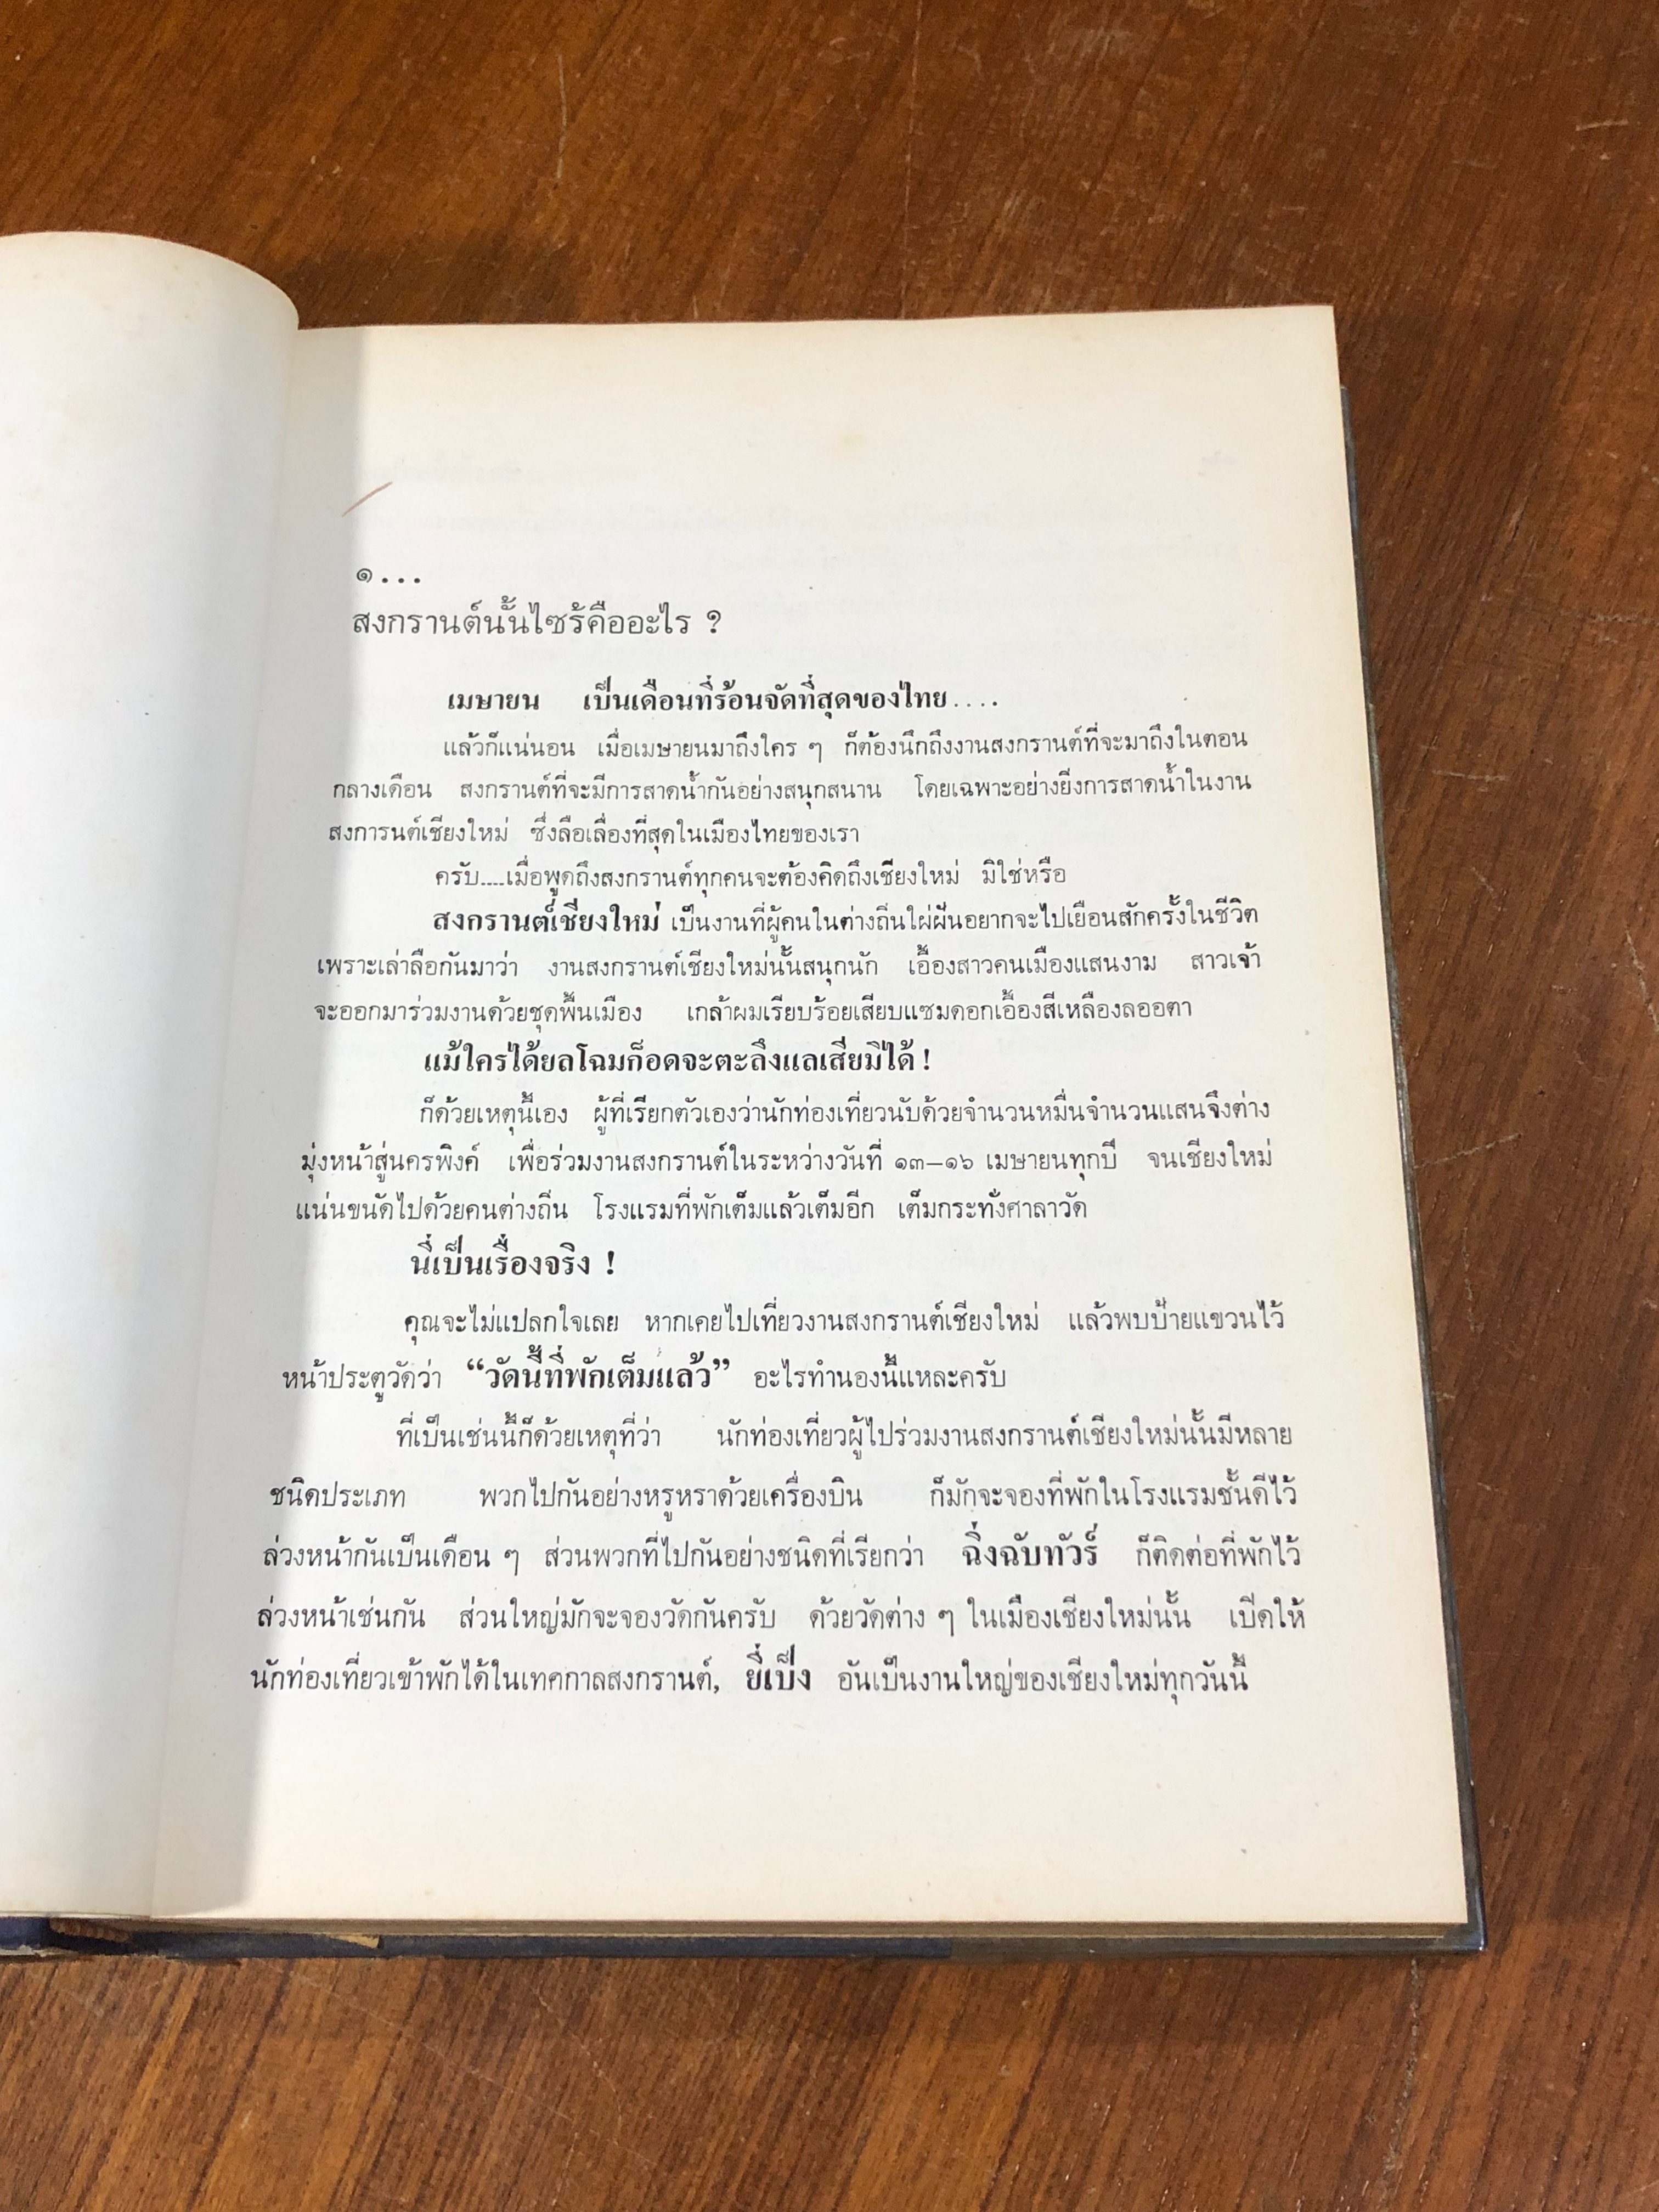 ๑...
สงกรานต์นั้นไซร้คืออะไร ?
เมษายน เป็นเดือนที่ร้อนจัดที่สุดของไทย....
แล้วก็แน่นอน เมื่อเมษายนมาถึงใคร ๆ ก็ต้องนึกถึงงานสงกรานต์ที่จะมาถึงในตอน
กลางเดือน สงกรานต์ที่จะมีการสาดน้ำกันอย่างสนุกสนาน โดยเฉพาะอย่างยิ่งการสาดน้ำในงาน
สงการนต์เชียงใหม่ ซึ่งลือเลื่องที่สุดในเมืองไทยของเรา
ครับ....เมื่อพูดถึงสงกรานต์ทุกคนจะต้องคิดถึงเชียงใหม่ มิใช่หรือ
สงกรานต์เชียงใหม่ เป็นงานที่ผู้คนในต่างถิ่นใฝ่ฝันอยากจะไปเยือนสักครั้งในชีวิต
เพราะเล่าลือกันมาว่า งานสงกรานต์เชียงใหม่นั้นสนุกนัก เอื้องสาวคนเมืองแสนงาม สาวเจ้า
จะออกมาร่วมงานด้วยชุดพื้นเมือง เกล้าผมเรียบร้อยเสียบแซมดอกเอื้องสีเหลืองลออตา
แม้ใครได้ยลโฉมก็อดจะตะลึงแลเสียมิได้ !
ก็ด้วยเหตุนี้เอง ผู้ที่เรียกตัวเองว่านักท่องเที่ยวนับด้วยจำนวนหมื่นจำนวนแสนจึงต่าง
มุ่งหน้าสู่นครพิงค์ เพื่อร่วมงานสงกรานต์ในระหว่างวันที่ ๑๓–๑๖ เมษายนทุกปี จนเชียงใหม่
แน่นขนัดไปด้วยคนต่างถิ่น โรงแรมที่พักเต็มแล้วเต็มอีก เต็มกระทั่งศาลาวัด
นี่เป็นเรื่องจริง !
คุณจะไม่แปลกใจเลย หากเคยไปเที่ยวงานสงกรานต์เชียงใหม่ แล้วพบป้ายแขวนไว้
หน้าประตูวัดว่า “วัดนี้ที่พักเต็มแล้ว” อะไรทำนองนี้แหละครับ
ที่เป็นเช่นนี้ก็ด้วยเหตุที่ว่า นักท่องเที่ยวผู้ไปร่วมงานสงกรานต์เชียงใหม่นั้นมีหลาย
ชนิดประเภท พวกไปกันอย่างหรูหราด้วยเครื่องบิน ก็มักจะจองที่พักในโรงแรมชั้นดีไว้
ล่วงหน้ากันเป็นเดือน ๆ ส่วนพวกที่ไปกันอย่างชนิดที่เรียกว่า ฉิ่งฉับทัวร์ ก็ติดต่อที่พักไว้
ล่วงหน้าเช่นกัน ส่วนใหญ่มักจะจองวัดกันครับ ด้วยวัดต่าง ๆ ในเมืองเชียงใหม่นั้น เปิดให้
นักท่องเที่ยวเข้าพักได้ในเทศกาลสงกรานต์, ยี่เป็ง อันเป็นงานใหญ่ของเชียงใหม่ทุกวันนี้